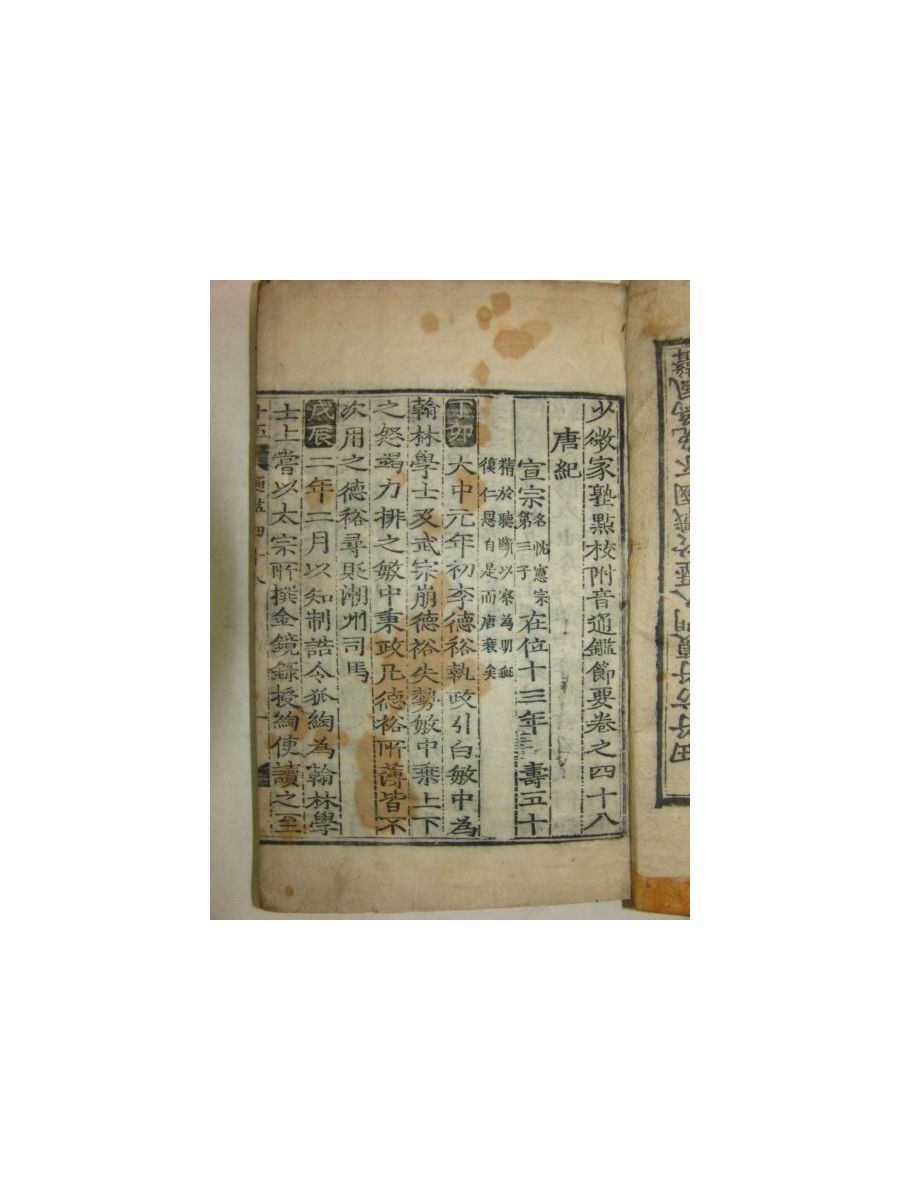 少微家塾點校附音通鑑節要卷之四十八
唐紀
宣宗
名忱憲宗
第三子
在位十三年
壽五十
精於聽斷以察為明無
復仁恩自是而唐衰矣
丁卯
大中元年初李德裕執政引白敏中為
翰林學士及武宗崩德裕失勢敏中乘上下
之怒竭力排之敏中秉政凡德裕所薄皆不
次用之德裕尋貶潮州司馬
戊辰
二年二月以知制誥令狐綯為翰林學
士上嘗以太宗所撰金鏡錄授綯使讀之至
十五
通鑑四十八